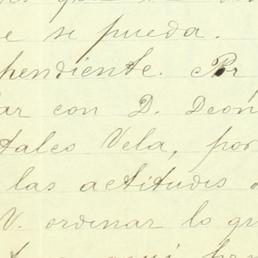 e se pueda.
pendiente. Por
ar con D. Deón
tales Vela, por
las actitudes
V. ordenar lo qu